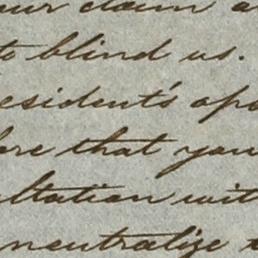 our claim a
to blind us.
esident's apo
ore that you
ltation wit
neutralize t